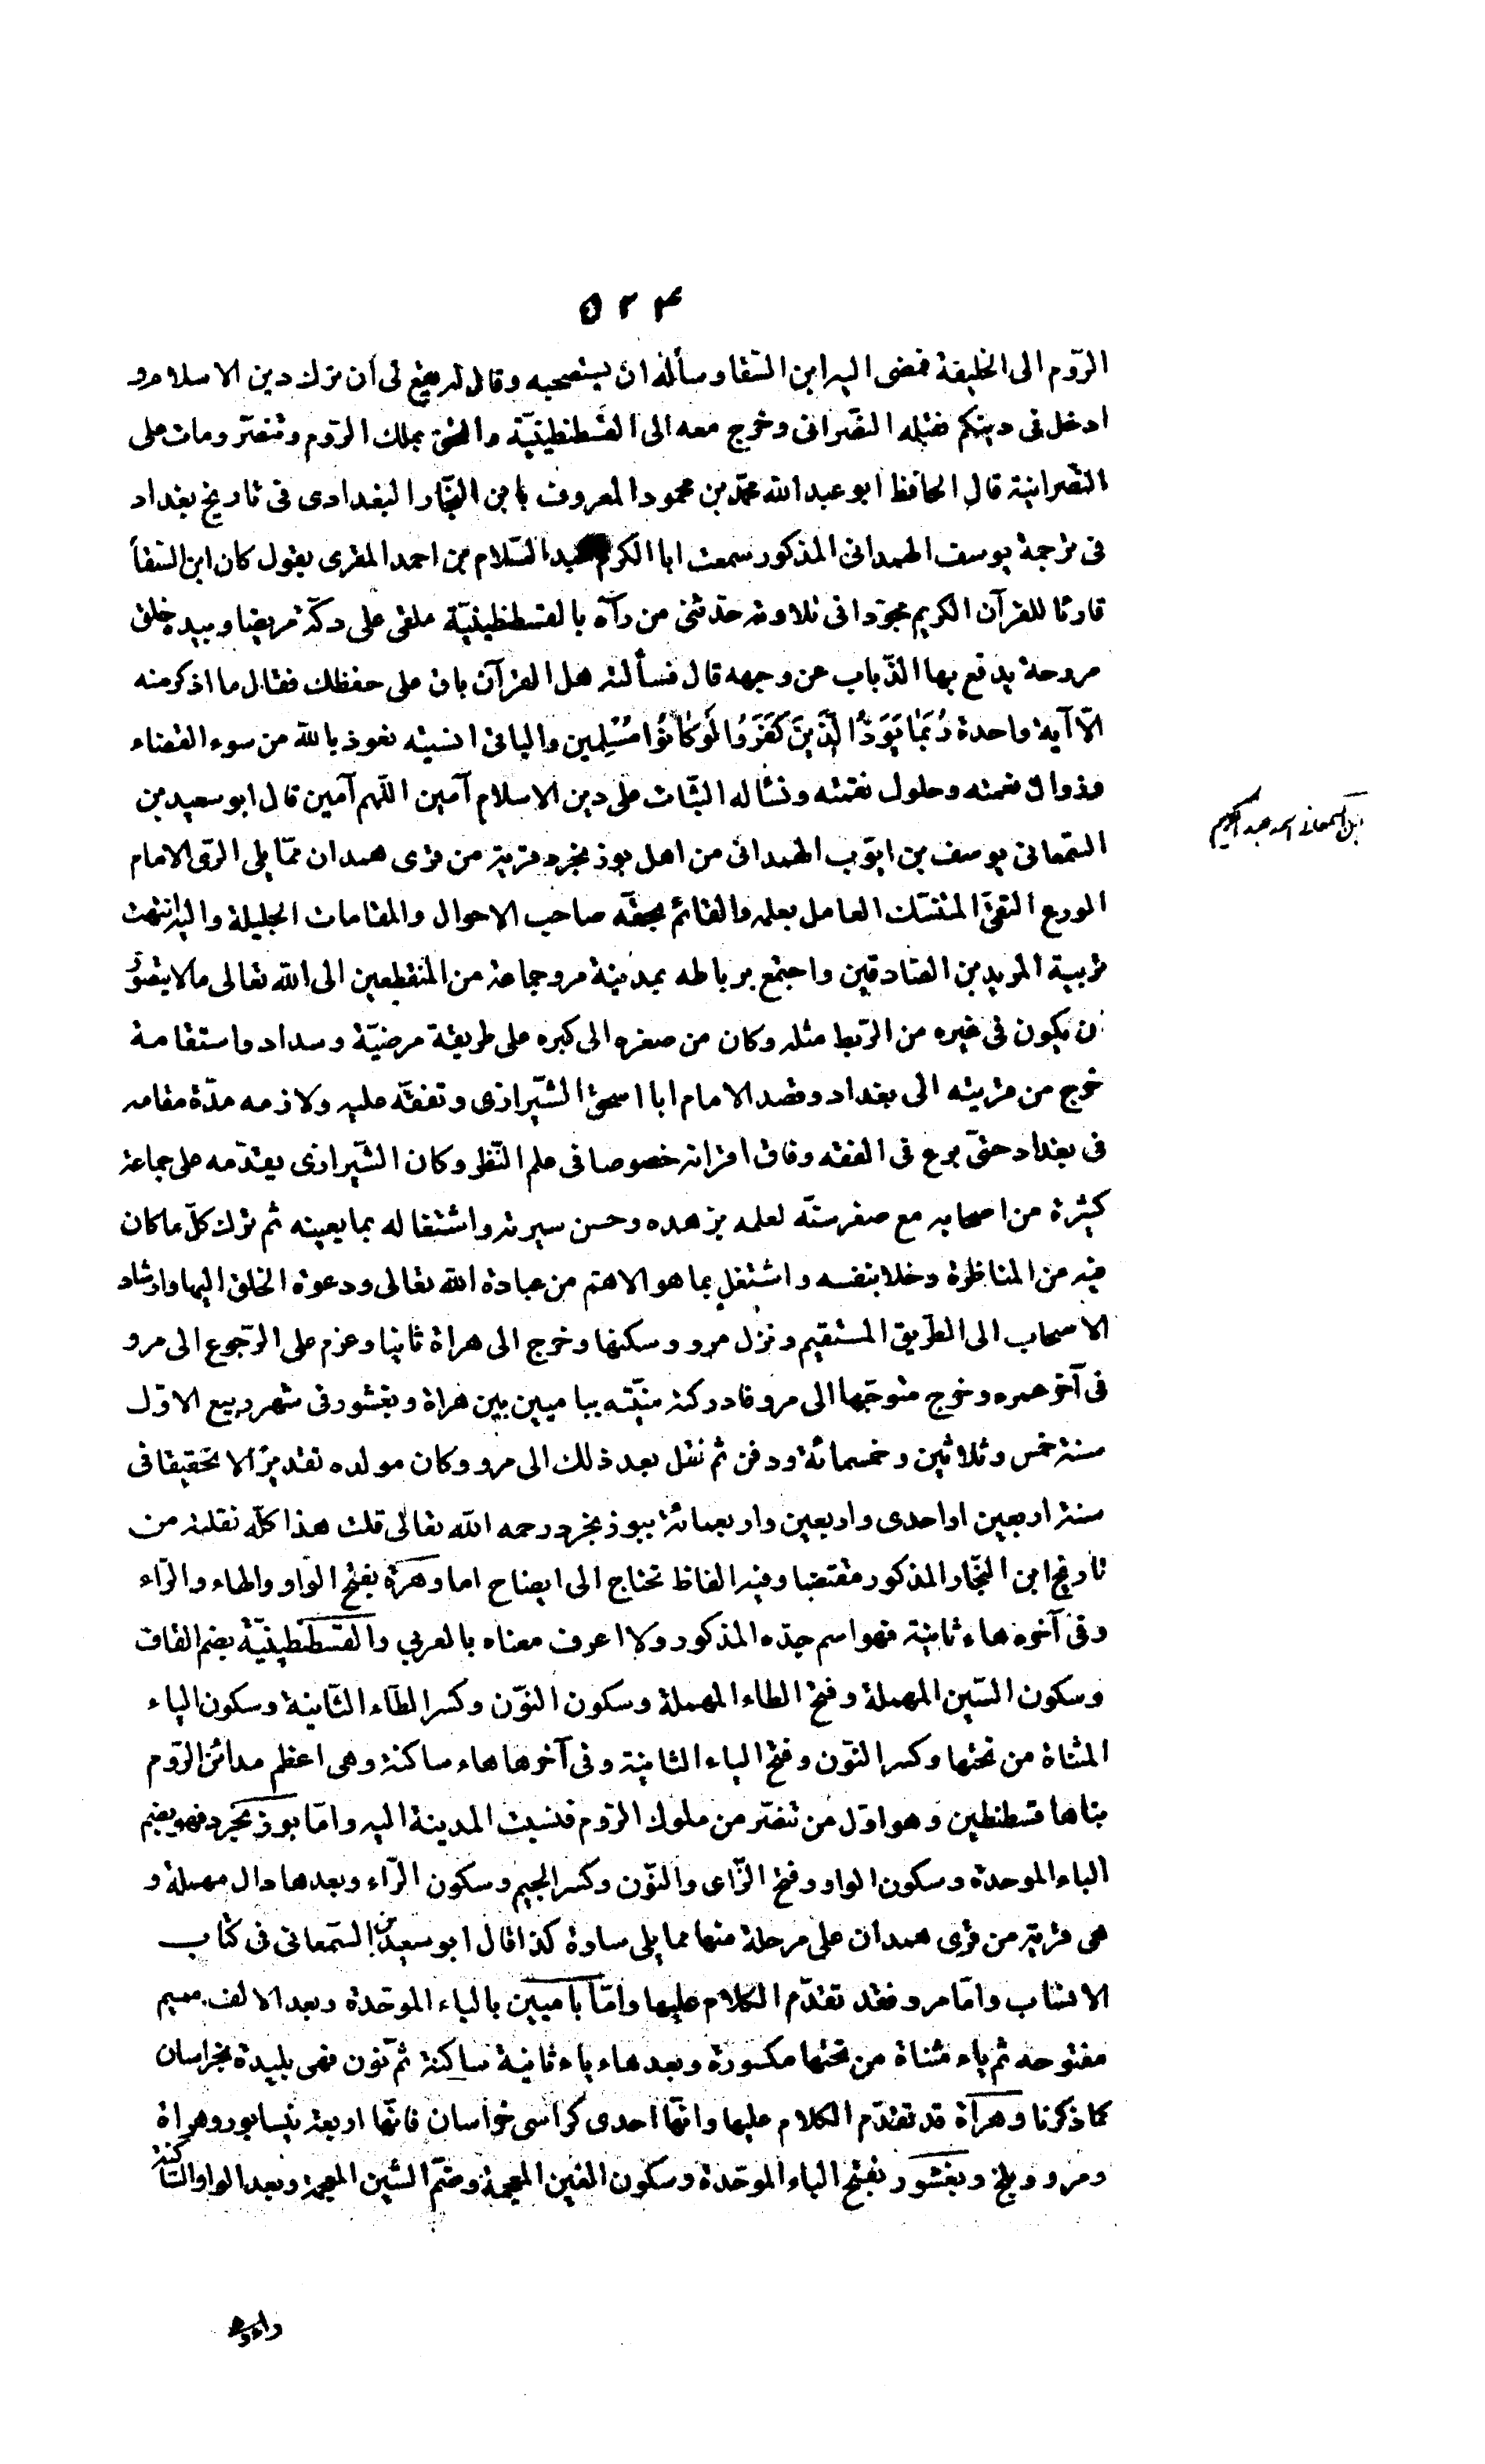 ٥٢٤
الرّوم الى الخليفة فمضى اليه ابن السّقا وسأله ان يستصحبه وقال له يقع لى أن نترك دين الاسلام و
ادخل فى دينكم فقبله النّصرانى وخرج معه الى القسطنطينيّة والتحق بملك الرّوم وتنصّر ومات على
النّصرانية قال الحافظ ابو عبد الله محمّد بن محمود المعروف بابن النجّار البغدادى فى تاريخ بغداد
فى ترجمة يوسف الهمدانى المذكور سمعت ابا الكرم عبد السّلام بن احمد المقرى يقول كان ابن السّقاْ
قارئا للقرآن الكريم مجوّدا فى تلاوته حدّثنى من رآه بالقسطنطينيّة ملقى على دكّة مريضا وبيده خلق
مروحة يدفع بها الذّباب عن وجهه قال فسألته هل القرآن باق على حفظك فقال ما اذكر منه
الّا آية واحدة رُبَمٰا يَوَدُّ الَّذِينَ كَفَرَوُا لَوْ كٰانُوا مُسْلِمين والباقى انسيته نعوذ بالله من سوء القضاء
وزوال نعمته وحلول نقمته ونسأله الثّبات على دين الاسلام آمين اللّهم آمين قال ابو سعيد بن
ابن السمعانى اسمه عبد الكريم
السّمعانى يوسف بن ايّوب الهمدانى من اهل بوزنجرد قرية من قرى همدان ممّا يلى الرّى الامام
الورع التقىّ المتنسّك العامل بعلمه والقائم بحقّه صاحب الاحوال والمقامات الجليلة واليه انتهت
تربية المريدين الصّادقين واجتمع برباطه بمدينة مرو جماعة من المنقطعين الى الله تعالى ما لا يتصوّر
ان يكون فى غيره من الرّبط مثله وكان من صغره الى كبره على طريقة مرضيّة وسداد واستقامة
خرج من قريته الى بغداد وقصد الامام ابا اسحق الشّيرازى وتفقّه عليه ولازمه مدّة مقامه
فى بغداد حتّى برع فى الفقه وفاق اقرانه خصوصا فى علم النّظر وكان الشّيرازى يقدّمه على جماعة
كثيرة من اصحابه مع صغر سنّه لعلمه بزهده وحسن سيرته واشتغاله بما يعينه ثم ترك كلّ ما كان
فيه من المناظرة وخلا بنفسه واشتغل بما هو الاهم من عبادة الله تعالى ودعوة الخلق اليها وارشاد
الاصحاب الى الطّريق المستقيم ونزل مرو وسكنها وخرج الى هراة ثانيا وعزم على الرّجوع الى مرو
فى آخر عمره وخرج متوجّها الى مرو فادركته منيّته بباميين بين هراة وبغشور فى شهر ربيع الاوّل
سنة خمس وثلاثين وخمسمائة ودفن ثم نقل بعد ذلك الى مرو وكان مولده تقديرًا لا تحقيقا فى
سنة اربعين او احدى واربعين واربعمائة ببوزنجرد رحمه الله تعالى قلت هذا كلّه نقلته من
تاريخ ابن النجّار المذكور مقتضبا وفيه الفاظ تحتاج الى ايضاح اما وهرة بفتح الواو والهاء والرّاء
وفى آخره هاء ثانية فهو اسم جدّه المذكور ولا اعرف معناه بالعربي والقسطنطينيّة بضم القاف
وسكون السّين المهملة وفتح الطاء المهملة وسكون النّون وكسر الطّاء الثّانية وسكون الياء
المثناة من تحتها وكسر النّون وفتح الياء الثانية وفى آخرها هاء ساكنة وهى اعظم مدائن الرّوم
بناها قسطنطين وهو اوّل من تنصّر من ملوك الرّوم فنسبت المدينة اليه وامّا بوزنجرد فهو بضم
الباء الموحدة وسكون الواو وفتح الزّاى والنّون وكسر الجيم وسكون الرّاء وبعدها دال مهملة و
هى قرية من قرى همدان على مرحلة منها مما يلى ساوة كذا قال ابو سعيد بن السّمعانى فى كتاب
الانساب وامّا مرو فقد تقدّم الكلام عليها وامّا باميين بالباء الموحّدة وبعد الالف ميم
مفتوحه ثم ياء مثناة من تحتها مكسورة وبعدهاء ياء ثانية ساكنة ثم نون فهى بليدة بخراسان
كما ذكرنا وهراة قد تقدّم الكلام عليها وانّها احدى كراسى خراسان فانّها اربعة نيسابور وهراة
ومرو وبلخ وبغشور بفتح الباء الموحّدة وسكون الغين المعجمة وضمّ الشين المعجمة وبعد الواو السّاكنة
راء وه‍